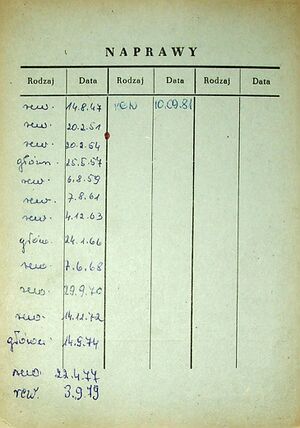 NAPRAWY
Rodzaj Data Rodzaj Data Rodzaj Data
rew. 14.8.47 REW 10.09.81
rew. 20.2.51
rew. 20.2.54
główn. 25.5.57
rew. 6.8.59
rew. 7.8.61
rew. 4.12.63
główn. 24.1.66
rew. 7.6.68
rew. 29.9.70
rew. 14.12.72
główn. 14.9.74
rew. 22.4.77
rew. 3.9.79